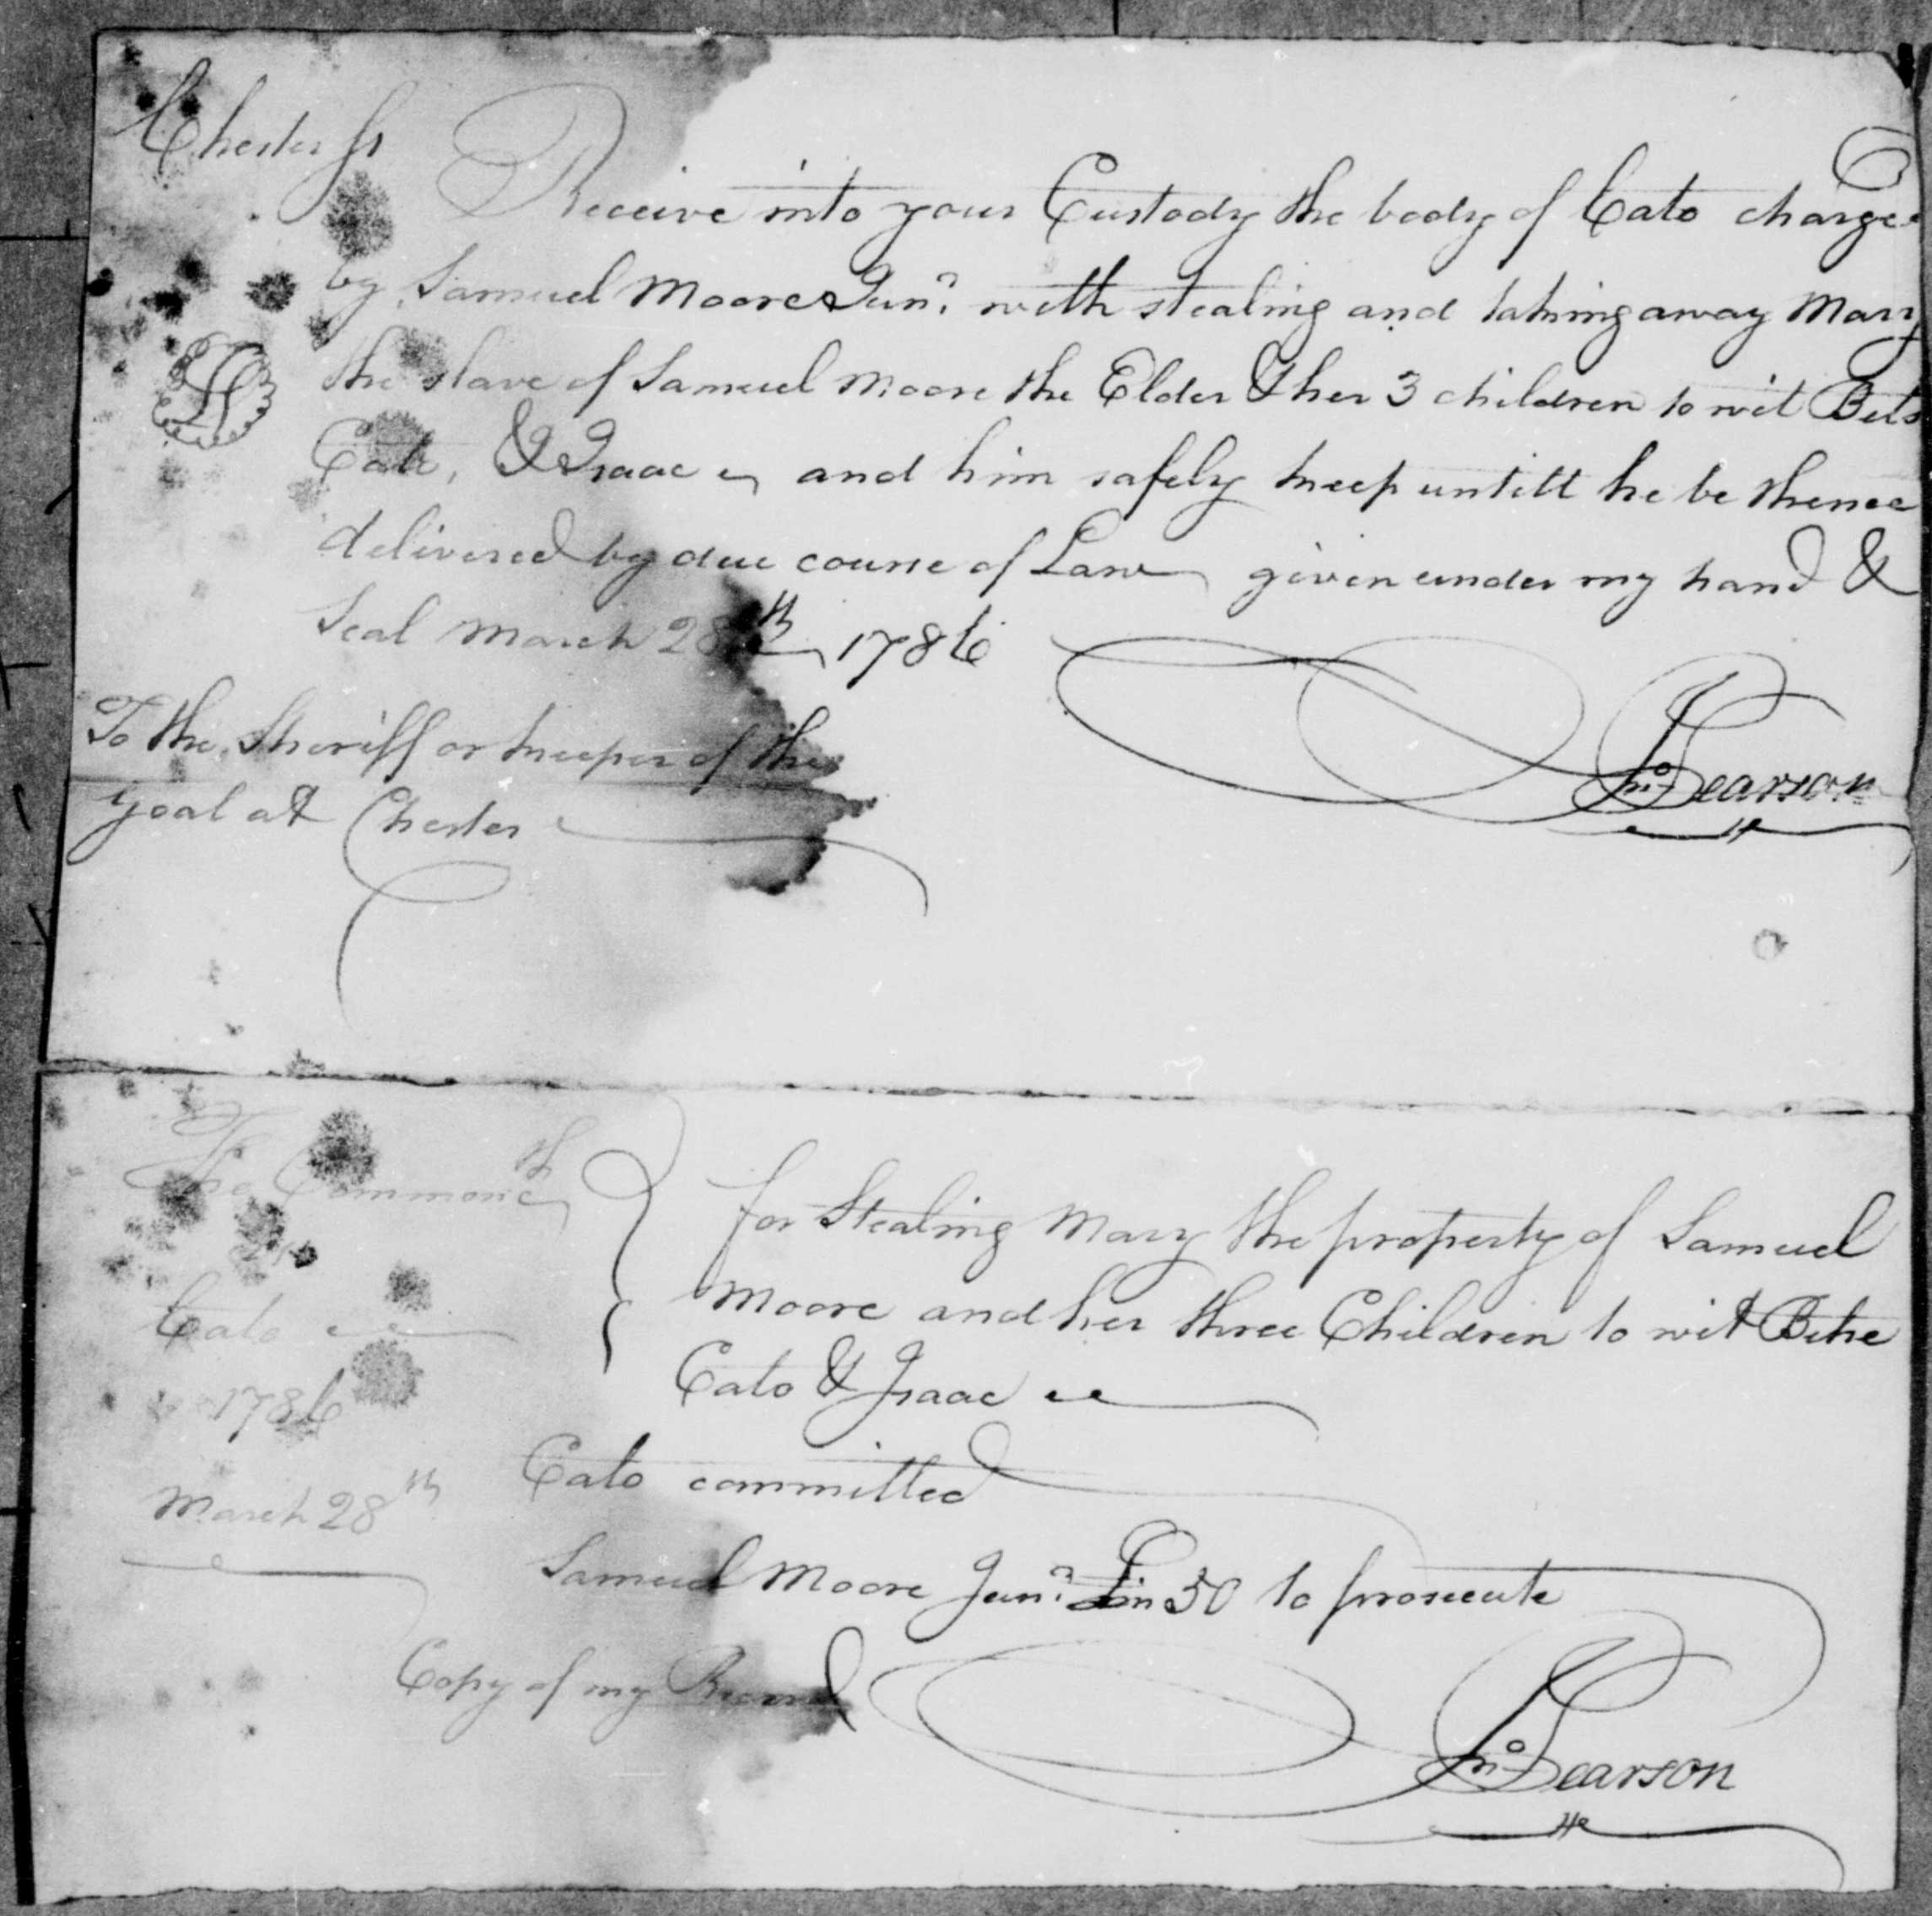 Chester ss
Receive into your Custody the body of Cato charge
by Samuel Moore Junr. with stealing and taking away Mary
the slave of Samuel Moore the Elder & her 3 children to wit Bets
Cato, & Isaac and him safely keep untill he be thence
delivered by due course of Law given under my hand &
Seal March 28th 1786
To the Sheriff or keeper of the
goal at Chester
Jno Pearson
The Commonth
Cato
1786
March 28th
for Stealing Mary the property of Samuel
Moore and her three Children to wit
Cato & Isaac
Cato committed
Samuel Moore Junr. in £50 to prosecute
Copy of my Record
Jno Pearson